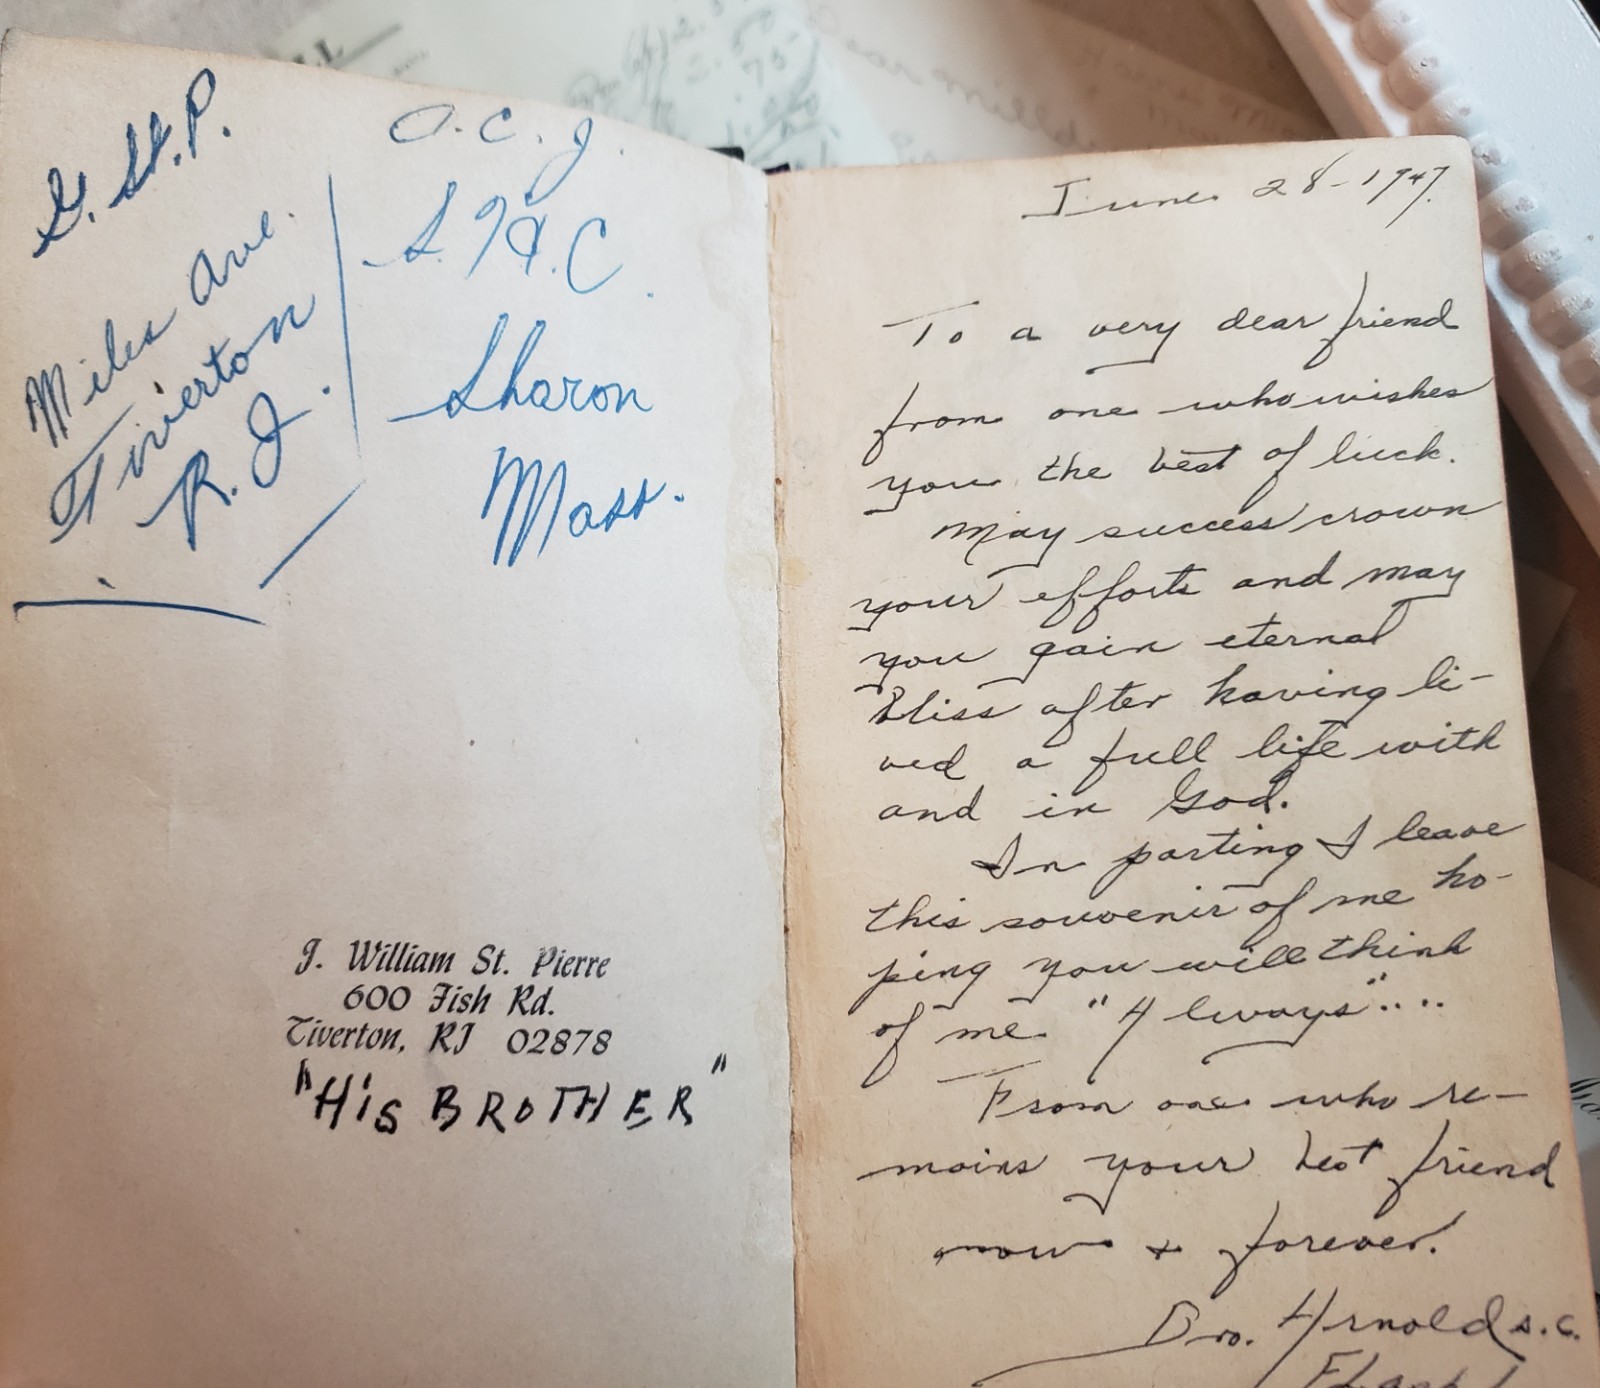 G. St. P.
Miles Ave.
Tiverton
R. I.
A. C. J.
S. H. C.
Sharon
Mass.
J. William St. Pierre
600 Fish Rd.
Tiverton, RI 02878
"HiS BROTHER"
June 28-1947.
To a very dear friend
from one who wishes
you the best of luck.
May success crown
your efforts and may
you gain eternal
Bliss after having li-
ved a full life with
and in God.
In parting I leave
this souvenir of me ho-
ping you will think
of me "Always"....
From one who re-
mains your best friend
now & forever.
Bro. Arnold s.c.